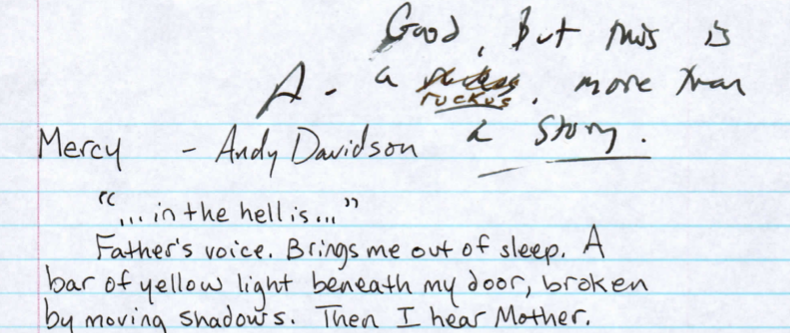 Good, But this is
A- a ruckus, more than
a story.
Mercy - Andy Davidson
"... in the hell is..."
Father's voice. Brings me out of sleep. A
bar of yellow light beneath my door, broken
by moving shadows. Then I hear Mother.